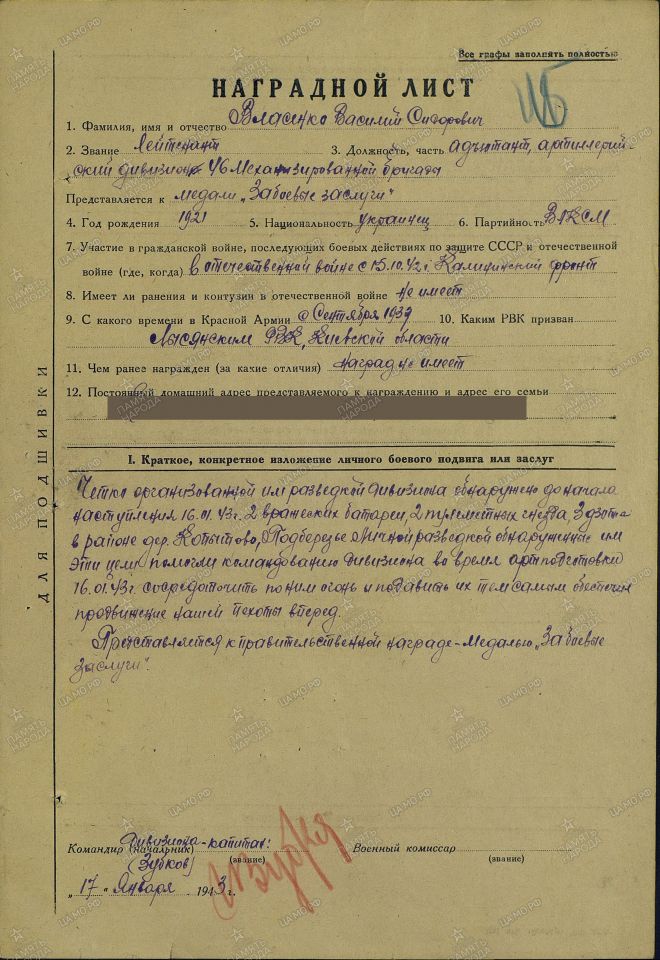 Все графы заполнять полностью
НАГРАДНОЙ ЛИСТ
1. Фамилия, имя и отчество Власенко Василий Сидорович
2. Звание Лейтенант 3. Должность, часть адъютант, артиллерий-
ский дивизион 46 Механизированной бригады
Представляется к медали „За боевые заслуги"
4. Год рождения 1921 5. Национальность украинец 6. Партийность ВЛКСМ
7. Участие в гражданской войне, последующих боевых действиях по защите СССР и отечественной
войне (где, когда) в отечественной войне с 15.10.42 г. Калининский фронт
8. Имеет ли ранения и контузии в отечественной войне не имеет
9. С какого времени в Красной Армии с Сентября 1939 10. Каким РВК призван
Лысянским РВК, Киевской области
11. Чем ранее награжден (за какие отличия) наград не имеет
12. Постоянный домашний адрес представляемого к награждению и адрес его семьи
ДЛЯ ПОДШИВКИ
I. Краткое, конкретное изложение личного боевого подвига или заслуг
Четко организованной им разведкой дивизиона обнаружено до начала
наступления 16.01.43г. 2 вражеских батареи, 2 пулеметных гнезда, 3 дзота
в районе дер. Копытово, Подберезье. Личной разведкой обнаруженные им
эти цели помогли командованию дивизиона во время артподготовки
16.01.43г. сосредоточить по ним огонь и подавить их тем самым обеспечив
продвижение нашей пехоты вперед.
Представляется к правительственной награде - Медалью „За боевые
заслуги".
Дивизиона - капитан:
Командир (начальник) Военный комиссар
(Зубков) (звание) (звание)
„17" Января 1943 г.
ПАМЯТЬ НАРОДА
ЦАМО.РФ